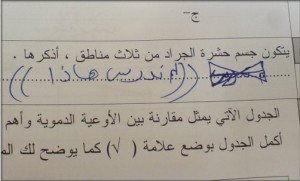 ج-
يتكون جسم حشرة الجراد من ثلاث مناطق ، أذكرها .
((لم ندرس هاذا))
الجدول الآتي يمثل مقارنة بين الأوعية الدموية وأهم
أكمل الجدول بوضع علامة ( √ ) كما يوضح لك الم